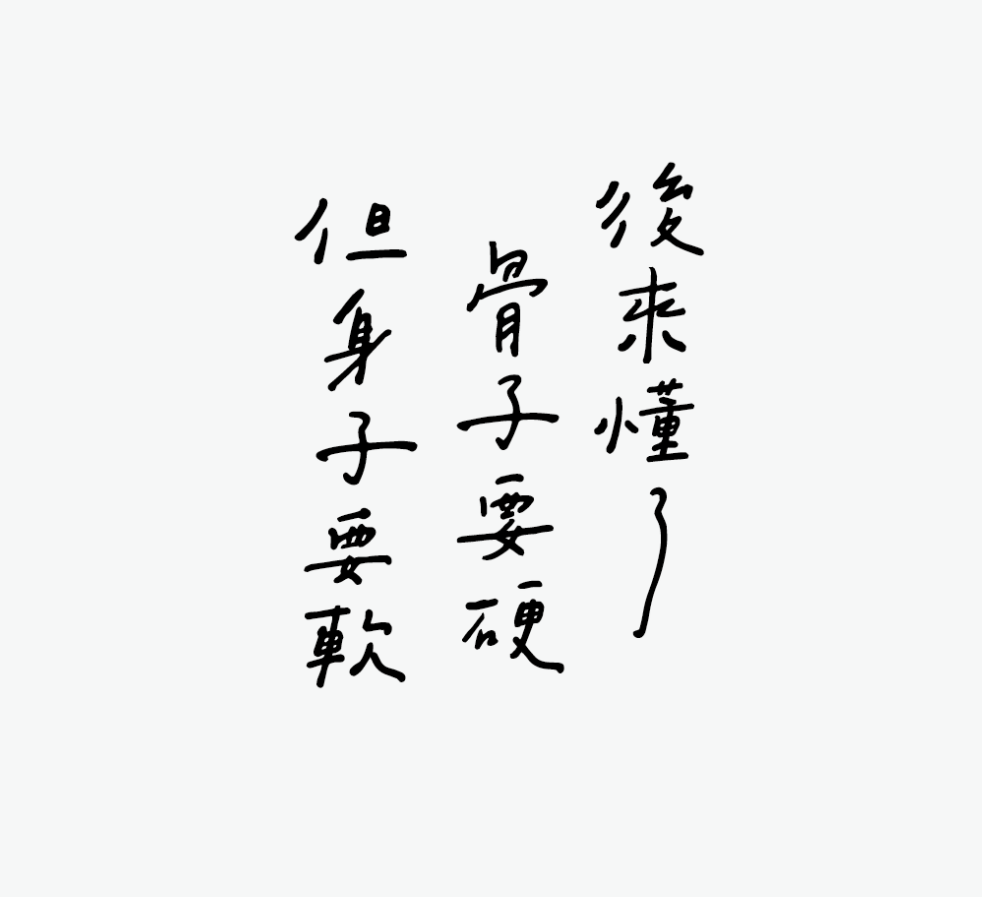 後來懂了
骨子要硬
但身子要軟